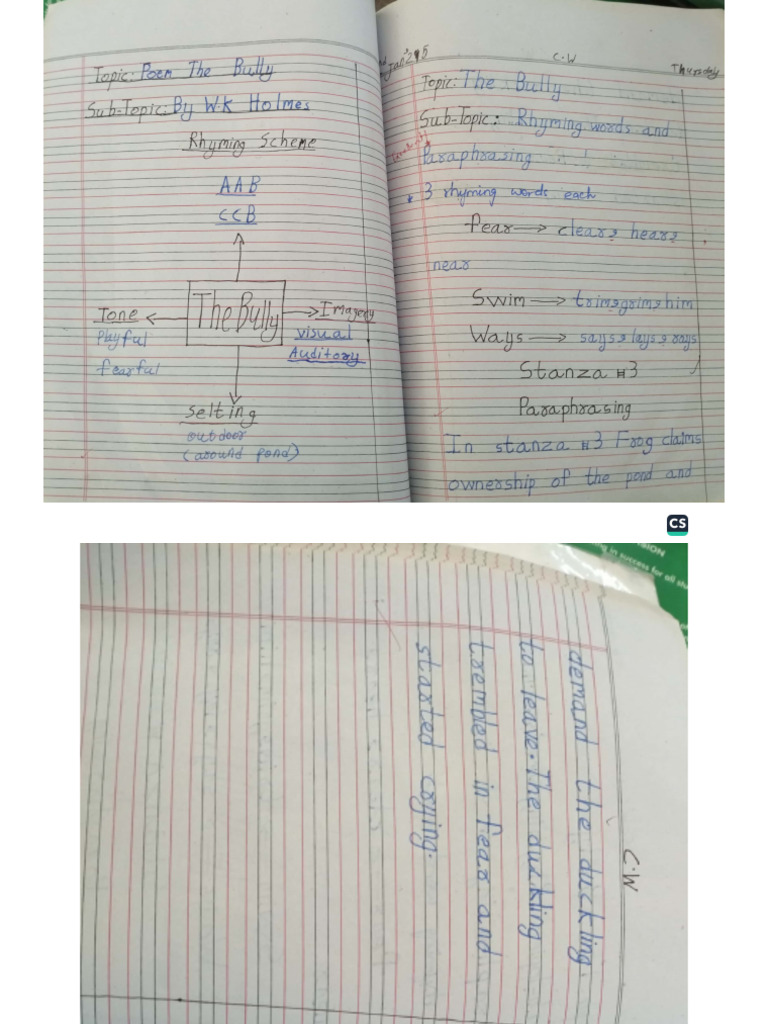 Topic: Poem The Bully
Sub-Topic: By W.K Holmes
Rhyming Scheme
AAB
CCB
Tone
The Bully
Imagery
Playful
fearful
visual
Auditory
Setting
outdoor
(around pond)
C.W
Thursday
Topic: The Bully
Sub-Topic: Rhyming words and
Paraphrasing
* 3 rhyming words each
Fear → clear, hear,
near
Swim → trim, grim, him
Ways → says, lays, rays
Stanza #3
Paraphrasing
In stanza #3 Frog claims
ownership of the pond and
CS
C.W
demand the duckling
to leave. The duckling
trembled in fear and
started crying.
ISION
ng in success for all